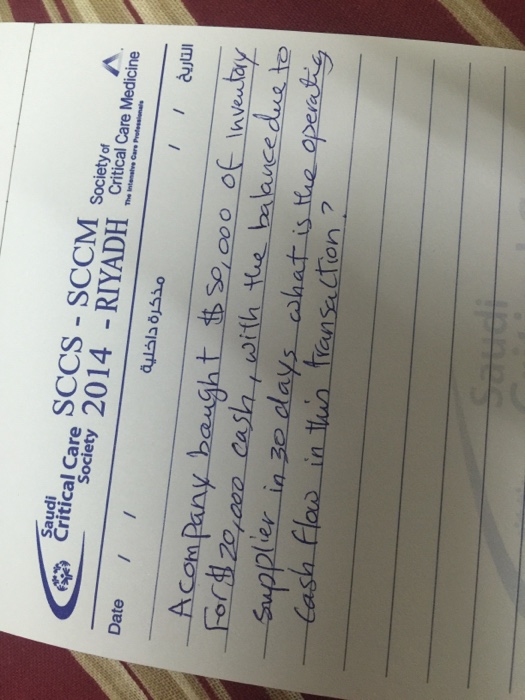 Saudi
Critical Care
Society
SCCS - SCCM
2014 - RIYADH
Society of
Critical Care Medicine
The Intensive Care Professionals
Date / /
مذكرة داخلية
/ / التاريخ
A company bought $50,000 of Inventory
For $20,000 cash, with the balance due to
supplier in 30 days what is the operating
Cash flow in this transaction?
Saudi